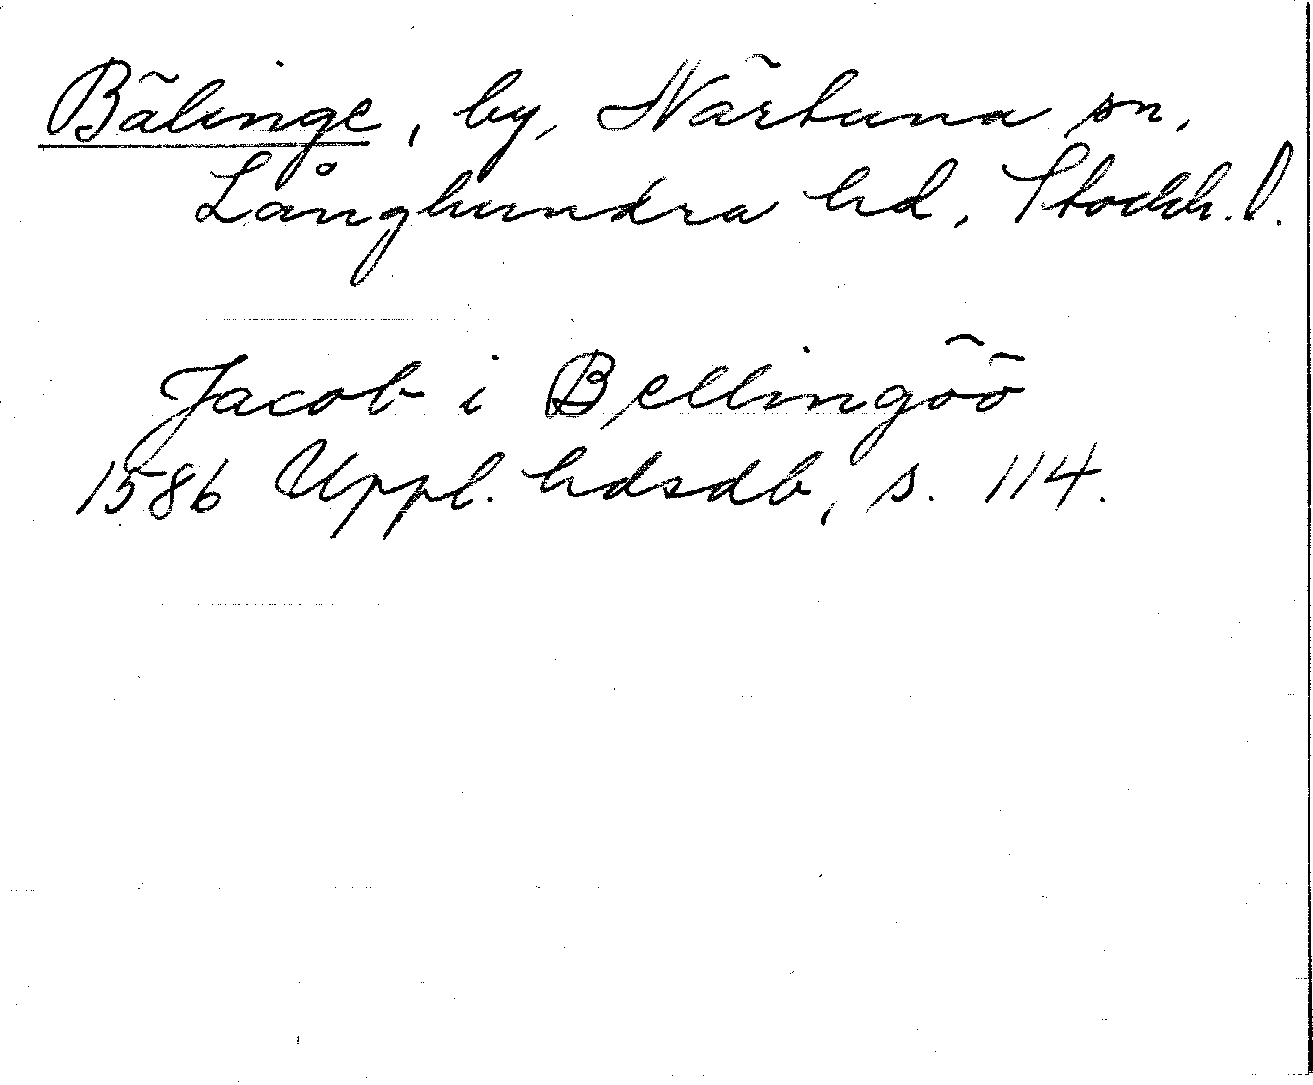 Bälinge, by, Närtuna sn,
Långhundra hd, Stockh. l.
Jacob i Bellingöö
1586 Uppl. hdsdb, s. 114.